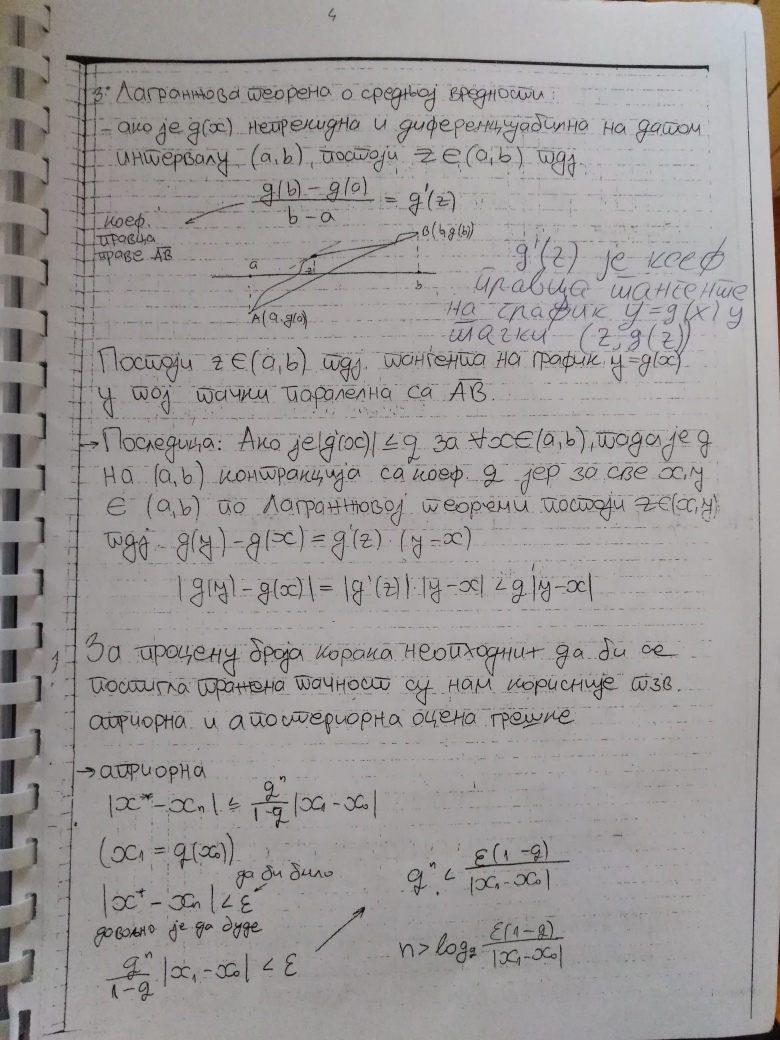 4
3. Лагранжова теорема о средњој вредности:
- ако је g(x) непрекидна и диференцијабилна на датом
интервалу (a,b), постоји z∈(a,b) тдј.
(g(b) - g(a)) / (b - a) = g'(z)
коеф.
правца
праве AB
B(b, g(b))
a
z
b
A(a, g(a))
g'(z) је коеф
правца тангенте
на график y=g(x) у
тачки (z, g(z))
Постоји z∈(a,b) тдј. тангента на график y=g(x)
у тој тачки паралелна са AB.
→ Последица: Ако је |g'(x)| ≤ q за ∀x∈(a,b), тада је g
на (a,b) контракција са коеф. q јер за све x,y
∈ (a,b) по Лагранжовој теореми постоји z∈(x,y)
тдј. g(y) - g(x) = g'(z) · (y-x)
|g(y) - g(x)| = |g'(z)| · |y-x| < q |y-x|
За процену броја корака неопходних да би се
постигла тражена тачност су нам корисније тзв.
априорна и апостериорна оцена грешке
→ априорна
|x* - xₙ| ≤ qⁿ / (1-q) |x₁ - x₀|
(x₁ = g(x₀))
да би било
|x* - xₙ| < ε
довољно је да буде
qⁿ / (1-q) |x₁ - x₀| < ε
qⁿ < ε(1-q) / |x₁ - x₀|
n > log_q ε(1-q) / |x₁ - x₀|